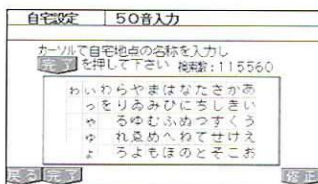 自宅設定 50音入力
カーソルで自宅地点の名称を入力し
完了 を押して下さい 検索数:115560
ゎ ぃ わ ら や ま は な た さ か あ
っ を り ゐ み ひ に ち し き い
ゃ る ゆ む ふ ぬ つ す く う
ゅ れ ゑ め へ ね て せ け え
ょ ろ よ も ほ の と そ こ お
戻る 完了 修正